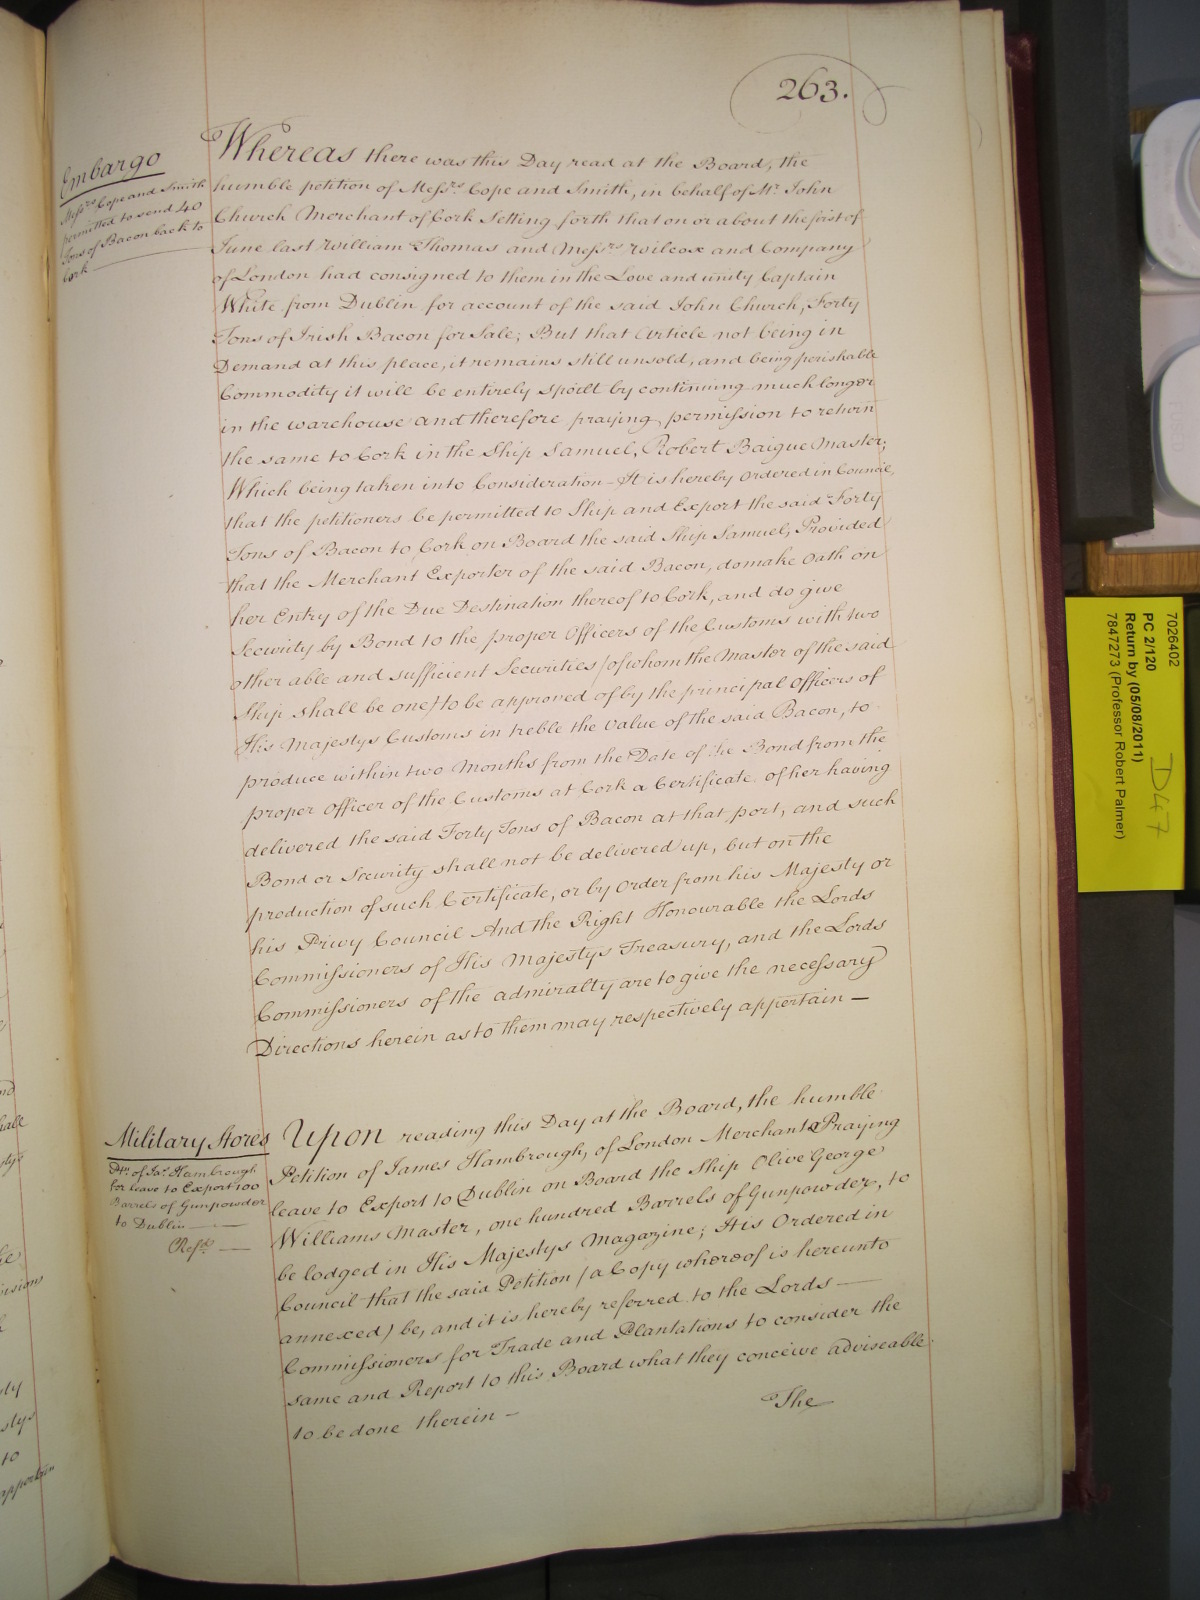 263.
Embargo
Messrs. Cope and Smith
permitted to send 40
Tons of Bacon back to
Cork
Whereas there was this Day read at the Board, the
humble petition of Messrs. Cope and Smith, in behalf of Mr. John
Church Merchant of Cork Setting forth that on or about the first of
June last William Thomas and Messrs. Wilcox and Company
of London had consigned to them in the Love and unity Captain
White from Dublin for account of the said John Church, Forty
Tons of Irish Bacon for Sale; But that Article not being in
Demand at this place, it remains still unsold, and being perishable
Commodity it will be entirely spoilt by continuing much longer
in the warehouse and therefore praying permission to return
the same to Cork in the Ship Samuel, Robert Baigue Master;
Which being taken into Consideration - It is hereby Ordered in Council,
that the petitioners be permitted to Ship and Export the said Forty
Tons of Bacon to Cork on Board the said Ship Samuel, Provided
that the Merchant Exporter of the said Bacon, do make Oath on
her Entry of the Due Destination thereof to Cork, and do give
Security by Bond to the proper Officers of the Customs with two
other able and sufficient Securities / of whom the Master of the said
Ship shall be one / to be approved of by the principal Officers of
His Majestys Customs in treble the Value of the said Bacon, to
produce within two Months from the Date of the Bond from the
proper Officer of the Customs at Cork a Certificate of her having
delivered the said Forty Tons of Bacon at that port, and such
Bond or Security shall not be delivered up, but on the
production of such Certificate, or by Order from his Majesty or
his Privy Council And the Right Honourable the Lords
Commissioners of His Majestys Treasury, and the Lords
Commissioners of the admiralty are to give the necessary
Directions herein as to them may respectively appertain —
Military Stores
Petn. of Jas. Hambrough
for leave to Export 100
Barrels of Gunpowder
to Dublin
Refd.
Upon reading this Day at the Board, the humble
Petition of James Hambrough, of London Merchant Praying
leave to Export to Dublin on Board the Ship Olive George
Williams Master, one hundred Barrels of Gunpowder, to
be lodged in His Majestys Magazine; It is Ordered in
Council that the said Petition / a Copy whereof is hereunto
annexed / be, and it is hereby referred to the Lords —
Commissioners for Trade and Plantations to consider the
same and Report to this Board what they conceive adviseable
to be done therein —
The
7026402
PC 2/120
Return by (05/08/2011)
7847273 (Professor Robert Palmer)
D47